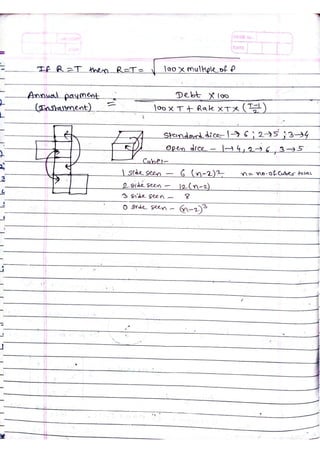 If R=T then R=T= √100 x multiple of P
Annual payment (Instalment) = Debt x 100 / 100 x T + Rate x T x (T-1/2)
Standard dice - 1→6 ; 2→5 ; 3→4
Open dice - 1→4, 2→6, 3→5
Cube:-
1 side seen - 6 (n-2)² n = no. of cubes
2 side seen - 12 (n-2)
3 side seen - 8
0 side seen - (n-2)³